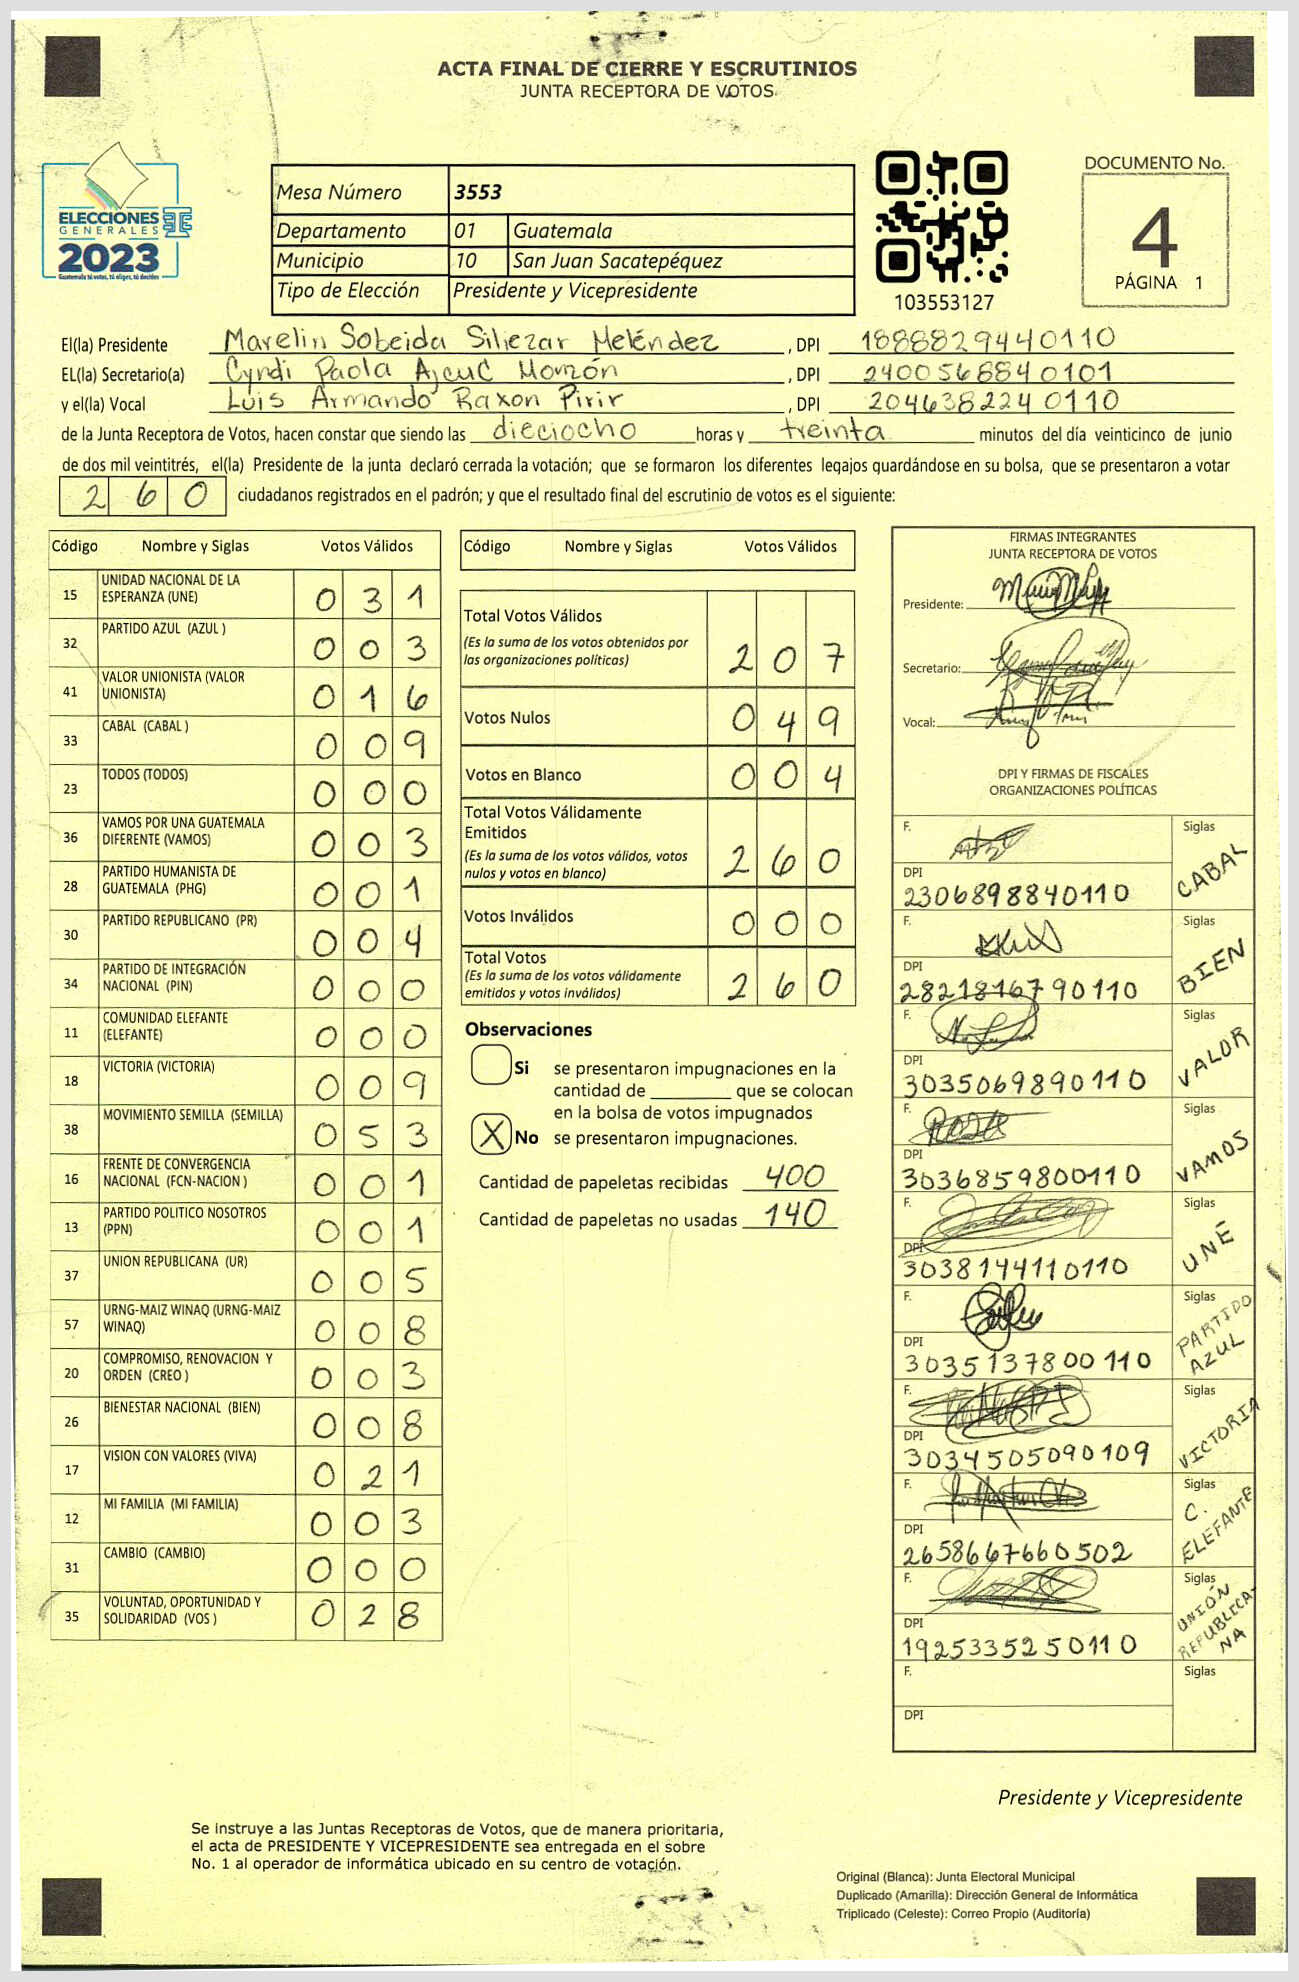 ACTA FINAL DE CIERRE Y ESCRUTINIOS
JUNTA RECEPTORA DE VOTOS
ELECCIONES
GENERALES
2023
Guatemala tú votas, tú eliges, tú decides
Mesa Número 3553
Departamento 01 Guatemala
Municipio 10 San Juan Sacatepéquez
Tipo de Elección Presidente y Vicepresidente
103553127
DOCUMENTO No.
4
PÁGINA 1
El(la) Presidente Marelin Sobeida Siliezar Meléndez, DPI 1888829440110
EL(la) Secretario(a) Cyndi Paola Ajcuc Monzón, DPI 2400568840101
y el(la) Vocal Luis Armando Raxon Pirir, DPI 2046382240110
de la Junta Receptora de Votos, hacen constar que siendo las dieciocho horas y treinta minutos del día veinticinco de junio
de dos mil veintitrés, el(la) Presidente de la junta declaró cerrada la votación; que se formaron los diferentes legajos guardándose en su bolsa, que se presentaron a votar
260 ciudadanos registrados en el padrón; y que el resultado final del escrutinio de votos es el siguiente:
Código Nombre y Siglas Votos Válidos
15 UNIDAD NACIONAL DE LA ESPERANZA (UNE) 031
32 PARTIDO AZUL (AZUL ) 003
41 VALOR UNIONISTA (VALOR UNIONISTA) 016
33 CABAL (CABAL ) 009
23 TODOS (TODOS) 000
36 VAMOS POR UNA GUATEMALA DIFERENTE (VAMOS) 003
28 PARTIDO HUMANISTA DE GUATEMALA (PHG) 001
30 PARTIDO REPUBLICANO (PR) 004
34 PARTIDO DE INTEGRACIÓN NACIONAL (PIN) 000
11 COMUNIDAD ELEFANTE (ELEFANTE) 000
18 VICTORIA (VICTORIA) 009
38 MOVIMIENTO SEMILLA (SEMILLA) 053
16 FRENTE DE CONVERGENCIA NACIONAL (FCN-NACION ) 001
13 PARTIDO POLITICO NOSOTROS (PPN) 001
37 UNION REPUBLICANA (UR) 005
57 URNG-MAIZ WINAQ (URNG-MAIZ WINAQ) 008
20 COMPROMISO, RENOVACION Y ORDEN (CREO ) 003
26 BIENESTAR NACIONAL (BIEN) 008
17 VISION CON VALORES (VIVA) 021
12 MI FAMILIA (MI FAMILIA) 003
31 CAMBIO (CAMBIO) 000
35 VOLUNTAD, OPORTUNIDAD Y SOLIDARIDAD (VOS ) 028
Código Nombre y Siglas Votos Válidos
Total Votos Válidos
(Es la suma de los votos obtenidos por
las organizaciones políticas) 207
Votos Nulos 049
Votos en Blanco 004
Total Votos Válidamente
Emitidos
(Es la suma de los votos válidos, votos
nulos y votos en blanco) 260
Votos Inválidos 000
Total Votos
(Es la suma de los votos válidamente
emitidos y votos inválidos) 260
Observaciones
Si se presentaron impugnaciones en la
cantidad de ________ que se colocan
en la bolsa de votos impugnados
X No se presentaron impugnaciones.
Cantidad de papeletas recibidas 400
Cantidad de papeletas no usadas 140
FIRMAS INTEGRANTES
JUNTA RECEPTORA DE VOTOS
Presidente:
Secretario:
Vocal:
DPI Y FIRMAS DE FISCALES
ORGANIZACIONES POLÍTICAS
F. Siglas CABAL
DPI 2306898840110
F. Siglas BIEN
DPI 2821816790110
F. Siglas VALOR
DPI 3035069890110
F. Siglas VAMOS
DPI 3036859800110
F. Siglas UNE
DPI 3038144110110
F. Siglas PARTIDO AZUL
DPI 3035137800110
F. Siglas VICTORIA
DPI 3034505090109
F. Siglas C. ELEFANTE
DPI 2658667660502
F. Siglas UNIÓN REPUBLICA-NA
DPI 1925335250110
F. Siglas
DPI
Presidente y Vicepresidente
Se instruye a las Juntas Receptoras de Votos, que de manera prioritaria,
el acta de PRESIDENTE Y VICEPRESIDENTE sea entregada en el sobre
No. 1 al operador de informática ubicado en su centro de votación.
Original (Blanca): Junta Electoral Municipal
Duplicado (Amarilla): Dirección General de Informática
Triplicado (Celeste): Correo Propio (Auditoría)